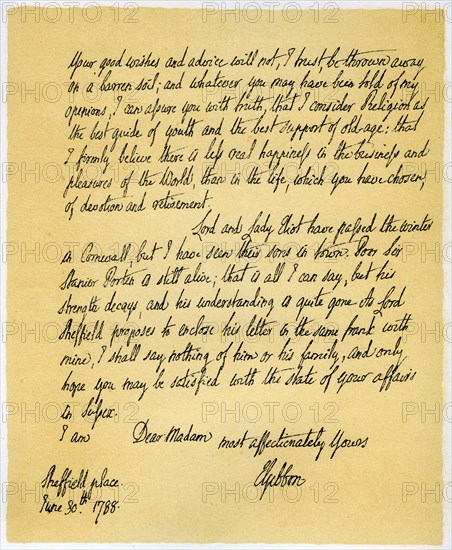 Your good wishes and advice will not, I trust, be thrown away
on a barren soil; and whatever you may have been told of my
opinions, I can assure you with truth, that I consider Religion as
the best guide of youth and the best support of old-age: that
I firmly believe there is less real happiness in the business and
pleasures of the World, than in the life, which you have chosen,
of devotion and retirement.
Lord and Lady Eliot have passed the winter
in Cornwall, but I have seen their sons in town. Poor Sir
Stanier Porten is still alive; that is all I can say, but his
strength decays, and his understanding is quite gone. As Lord
Sheffield proposes to enclose his letter in the same frank with
mine, I shall say nothing of him or his family, and only
hope you may be satisfied with the state of your affairs
in Sussex.
I am Dear Madam most affectionately Yours
EGibbon
Sheffield place.
June 30.th 1788.
PHOTO12